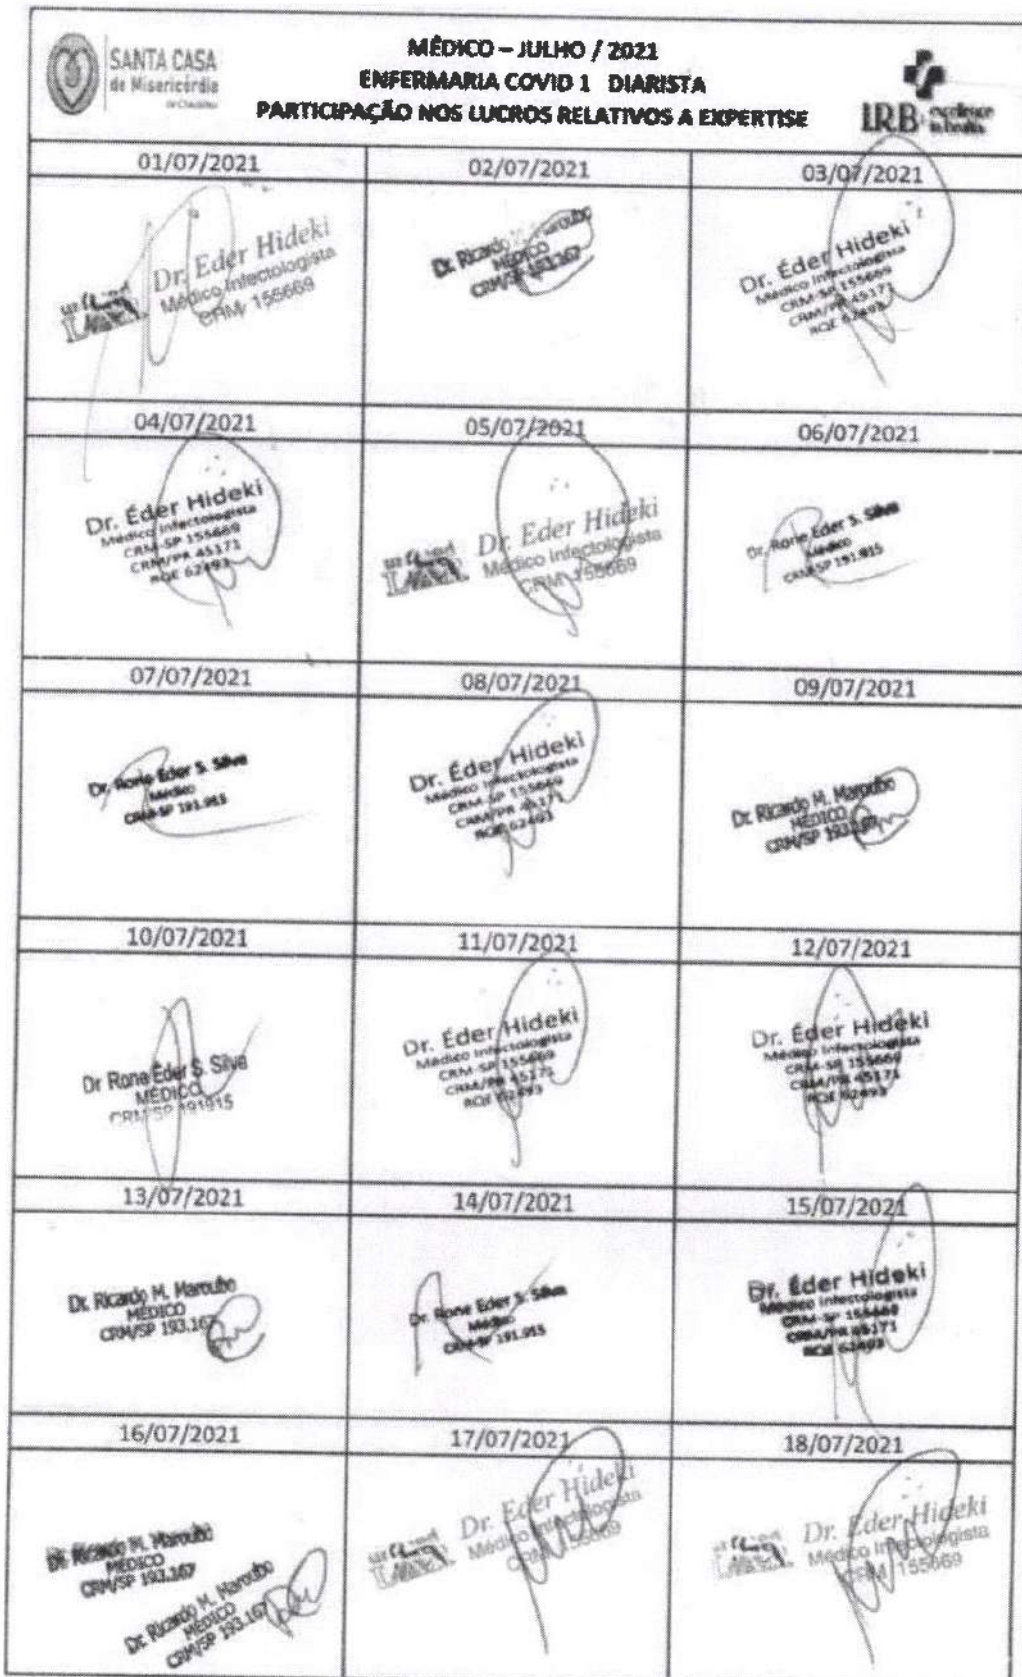 SANTA CASA
de Misericórdia
de Chavantes
MÉDICO – JULHO / 2021
ENFERMARIA COVID 1 DIARISTA
PARTICIPAÇÃO NOS LUCROS RELATIVOS A EXPERTISE
IRB
01/07/2021 02/07/2021 03/07/2021
Dr. Eder Hideki
Médico Infectologista
CRM: 155669
Dr. Ricardo M. Maroubo
MÉDICO
CRM/SP 193.167
Dr. Éder Hideki
Médico Infectologista
CRM-SP 155669
CRM/PR 45171
RQE 62493
04/07/2021 05/07/2021 06/07/2021
Dr. Éder Hideki
Médico Infectologista
CRM-SP 155669
CRM/PR 45171
RQE 62493
Dr. Eder Hideki
Médico Infectologista
CRM: 155669
Dr. Rone Eder S. Silva
Médico
CRM-SP 191.915
07/07/2021 08/07/2021 09/07/2021
Dr. Rone Eder S. Silva
Médico
CRM-SP 191.915
Dr. Éder Hideki
Médico Infectologista
CRM-SP 155669
CRM/PR 45171
RQE 62493
Dr. Ricardo M. Maroubo
MÉDICO
CRM/SP 193.167
10/07/2021 11/07/2021 12/07/2021
Dr Rone Éder S. Silva
MÉDICO
CRM/SP 191915
Dr. Éder Hideki
Médico Infectologista
CRM-SP 155669
CRM/PR 45171
RQE 62493
Dr. Éder Hideki
Médico Infectologista
CRM-SP 155669
CRM/PR 45171
RQE 62493
13/07/2021 14/07/2021 15/07/2021
Dr. Ricardo M. Maroubo
MÉDICO
CRM/SP 193.167
Dr. Rone Eder S. Silva
Médico
CRM-SP 191.915
Dr. Éder Hideki
Médico Infectologista
CRM-SP 155669
CRM/PR 45171
RQE 62493
16/07/2021 17/07/2021 18/07/2021
Dr. Ricardo M. Maroubo
MÉDICO
CRM/SP 193.167
Dr. Ricardo M. Maroubo
MÉDICO
CRM/SP 193.167
Dr. Eder Hideki
Médico Infectologista
CRM: 155669
Dr. Eder Hideki
Médico Infectologista
CRM: 155669